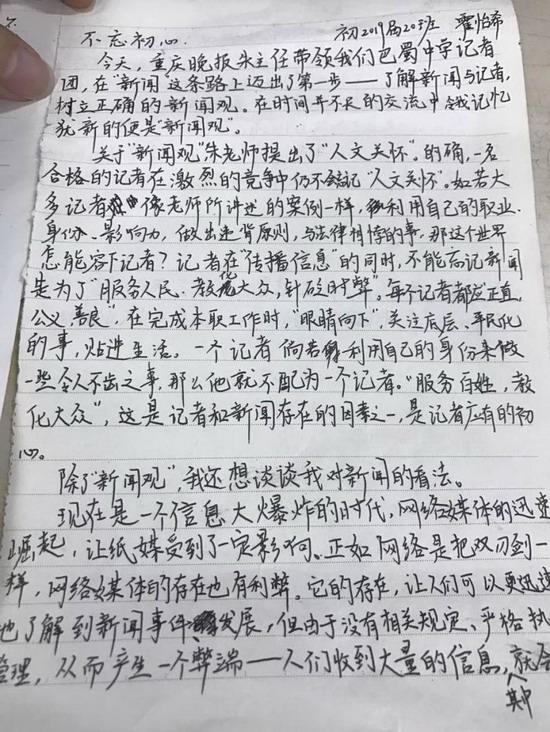 不忘初心. 初2019届20班 霍怡希
今天，重庆晚报朱主任带领我们巴蜀中学记者
团，在"新闻"这条路上迈出了第一步——了解新闻与记者，
树立正确的新闻观。在时间并不长的交流中令我记忆
犹新的便是"新闻观"。
关于"新闻观"朱老师提出了"人文关怀"。的确，一名
合格的记者在激烈的竞争中仍不会忘记"人文关怀"。如若大
多记者像老师所讲述的案例一样，利用自己的职业、
身份、影响力，做出违背原则，与法律相悖的事，那这个世界
怎能容下记者？记者在"传播信息"的同时，不能忘记新闻
是为了"服务人民、教化大众，针砭时弊"。每个记者都应正直、
公义、善良"，在完成本职工作时，"眼睛向下"，关注底层、平民化
的事，贴进生活。一个记者倘若利用自己的身份来做
一些令人不齿之事，那么他就不配为一个记者。"服务百姓，教
化大众"，这是记者和新闻存在的因素之一，是记者应有的初
心。
除了"新闻观"，我还想谈谈我对新闻的看法。
现在是一个信息大爆炸的时代，网络媒体的迅速
崛起，让纸媒受到了一定影响。正如网络是把双刃剑一
样，网络媒体的存在也有利弊。它的存在，让人们可以更迅速
地了解到新闻事件发展，但由于没有相关规定、严格执
管理，从而产生一个弊端——人们收到大量的信息，就会
其中